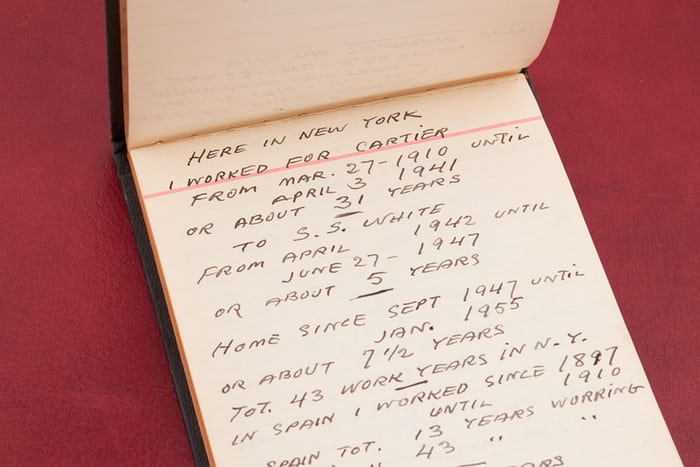 HERE IN NEW YORK
I WORKED FOR CARTIER
FROM MAR. 27-1910 UNTIL
APRIL 3 1941
OR ABOUT 31 YEARS
TO S.S. WHITE
FROM APRIL 1942 UNTIL
JUNE 27- 1947
OR ABOUT 5 YEARS
HOME SINCE SEPT 1947 UNTIL
JAN. 1955
OR ABOUT 7 1/2 YEARS
TOT. 43 WORK YEARS IN N.Y.
IN SPAIN I WORKED SINCE 1897
UNTIL 1910
SPAIN TOT. 13 YEARS WORRING
" 43 " "
YEARS